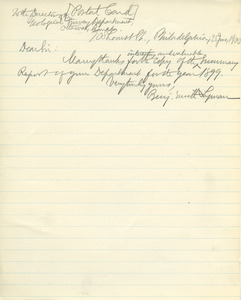 To the Director, [Postal Card]
Geological Survey Department,
Ottawa, Canada.
708 Locust St., Philadelphia, 12 June, 1900.
Dear Sir:
interesting and valuable
Many thanks for the copy of the Summary
Report of your Department for the year 1899.
Very truly yours,
Benj. Smith Lyman.